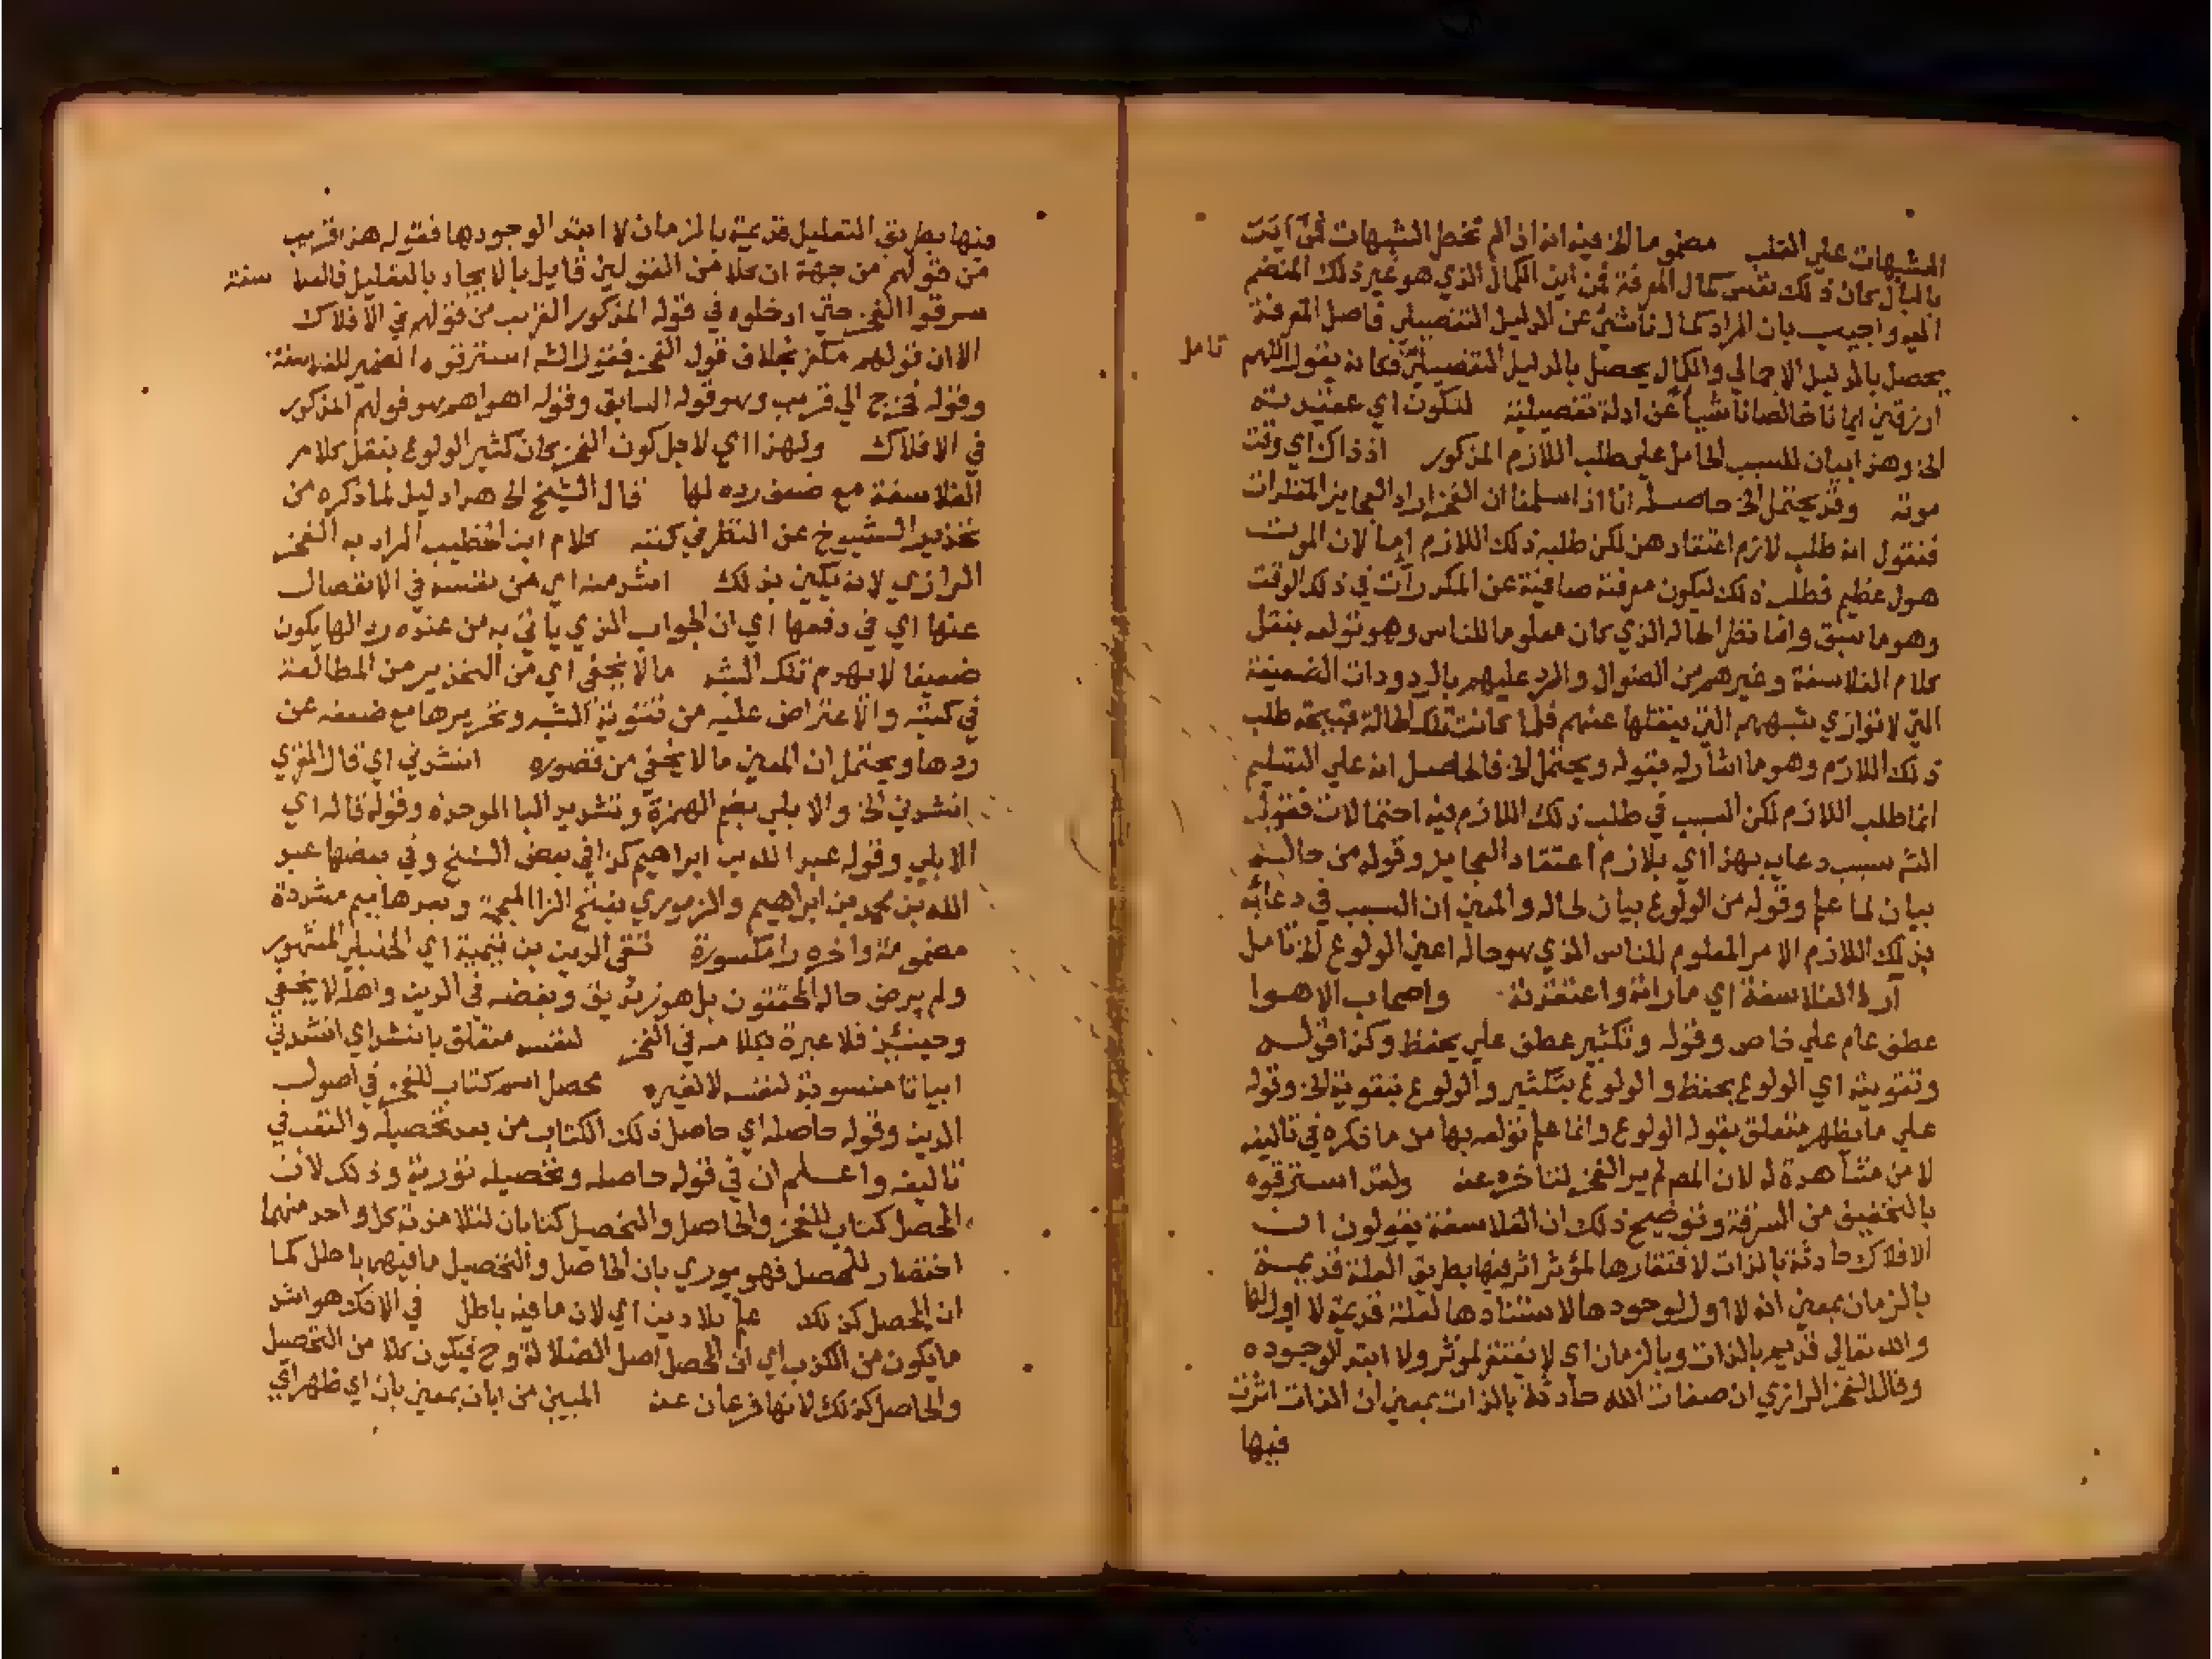 الشبهات على القلب مضمومة الخ فيه انه اذا لم تخطر الشبهات فمن اين
بالبال كان ذلك نفس كمال المعرفة فمن اين الكمال الذي هو غير ذلك المنضم
اليه واجيب بان المراد كمال ناشئ عن الدليل التفصيلي فاصل المعرفة
يحصل بالدليل الاجمالي والكمال يحصل بالدليل التفصيلي فكانه يقول اللهم
تامل
ارزقني ايمانا خالصا ناشيا عن ادلة تفصيلية لتكون اي عقيدته
الخ وهذا بيان للسبب الحامل على طلب اللازم المذكور اذ ذاك اي وقت
موته وقد يحتمل الخ حاصله انا اذا سلمنا ان الفخر اراد العجايز المقلدات
فنقول انه طلب لازم اعتقادهن لكن طلبه ذلك اللازم اما لان الموت
هول عظيم فطلب ذلك ليكون معرفته صافية عن المكدرات في ذلك الوقت
وهو ما سبق وانما نظر لحاله الذي كان معلوما للناس وهو تولعه بنقل
كلام الفلاسفة وغيرهم من الضوال والرد عليهم بالردودات الضعيفة
التي لا توازي شبههم التي ينقلها عنهم فلما كانت تلك الحالة قبيحة طلب
ذلك اللازم وهو ما اشار له بقوله ويحتمل الخ فالحاصل انه على التسليم
انما طلب اللازم لكن السبب في طلب ذلك اللازم فيه احتمالات فقول
الش سبب دعايه بهذا اي بلازم اعتقاد العجايز وقوله من حاله
بيان لما علم وقوله من الولوع بيان لحاله والمعنى ان السبب في دعائه
بذلك اللازم الامر المعلوم للناس الذي هو حاله اعني الولوع الخ تامل
آراء الفلاسفة اي ما رأته واعتقدته واصحاب الاهوا
عطف عام على خاص وقوله وتكثير عطف على بحفظ وكذا قوله
وتقويته اي الولوع بحفظ والولوع بتكثير والولوع بتقوية الخ وقوله
على ما يظهر متعلق بقوله الولوع وانما علم تولعه بها من ما ذكره في تاليفه
لا من مشاهدة له لان المص لم ير الفخر لتاخره عنه ولقد استرقوه
بالتخفيف من السرقة وتوضيح ذلك ان الفلاسفة يقولون ان
الافلاك حادثة بالذات لافتقارها لمؤثر اثر فيها بطريق العلة قديمة
بالزمان بمعنى انه لا اول لوجودها لاستنادها لعلة قديمة لا اول لها
والله تعالى قديم بالذات وبالزمان اي لا يفتقر لمؤثر ولا ابتدا لوجوده
وقال الفخر الرازي ان صفات الله حادثة بالذات بمعنى ان الذات اثرت
فيها
فيها بطريق التعليل قديمة بالزمان لا ابتدا لوجودها فقوله هذا قريب
من قولهم من جهة ان كلا من القولين قايل بالايجاد بالتعليل فالفلا سفة
سرقوا الفخر حتى ادخلوه في قوله المذكور القريب من قولهم في الافلاك
الا ان قولهم مكفر بخلاف قول الفخر فقول الش استرقوه الضمير للفلاسفة
وقوله فخرج الى قريب وهو قوله السابق وقوله اهواهم هو قولهم المذكور
في الافلاك ولهذا اي لاجل كون الفخر كان كثير الولوع بنقل كلام
الفلاسفة مع ضعف رده لها قال الشيخ الخ هذا دليل لما ذكره من
تحذير الشيوخ عن النظر في كتبه كلام ابن الخطيب المراد به الفخر
الرازي لانه يكنى بذلك اشد منه اي من نفسه في الانفصال
عنها اي في دفعها اي ان الجواب الذي يأتي به من عنده ردا لها يكون
ضعيفا لا يهدم تلك الشبه ما لا يخفى اي من التحذير من المطالعة
في كتبه والاعتراض عليه من تقوية الشبه وتحريرها مع ضعفه عن
ردها ويحتمل ان المعنى ما لا يخفى من قصوره انشدني اي قال المقري
انشدني الخ والابلي بضم الهمزة وتشديد البا الموحدة وقوله قال اي
الابلي وقوله عبد الله بن ابراهيم كذا في بعض النسخ وفي بعضها عبد
الله بن محمد بن ابراهيم والزموري بفتح الزا المعجمة وبعدها ميم مشددة
مضمومة واخره را مكسورة تقي الدين بن تيمية اي الحنبلي المشهور
ولم يرض حاله المحققون بل هو زنديق وبغضه في الدين واهله لا يخفى
وحينئذ فلا عبرة بكلامه في الفخر لنفسه متعلق بانشد اي انشدني
ابياتا منسوبة لنفسه لا لغيره محصل اسم كتاب للفخر في اصول
الدين وقوله حاصله اي حاصل ذلك الكتاب من بعد تحصيله والتعب في
تاليفه واعلم ان في قوله حاصله وتحصيله تورية وذلك لان
المحصل كتاب للفخر والحاصل والتحصيل كتابان لتلامذته كل واحد منهما
اختصار للمحصل فهو يوري بان الحاصل والتحصيل ما فيهم باطل كما
ان المحصل كذلك علم بلا دين اي لان ما فيه باطل في الافك هو اشد
ما يكون من الكذب اي ان المحصل اصل الضلالة وح فيكون كلا من التحصيل
والحاصل كذلك لانها فرعان عنه المبين من ابان بمعنى بان اي ظهر اي